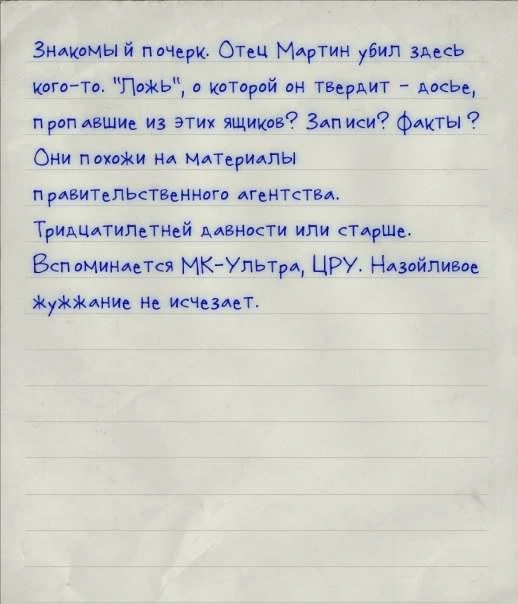 Знакомый почерк. Отец Мартин убил здесь
кого-то. "Ложь", о которой он твердит - досье,
пропавшие из этих ящиков? Записи? факты?
Они похожи на материалы
правительственного агентства.
Тридцатилетней давности или старше.
Вспоминается МК-Ультра, ЦРУ. Назойливое
жужжание не исчезает.